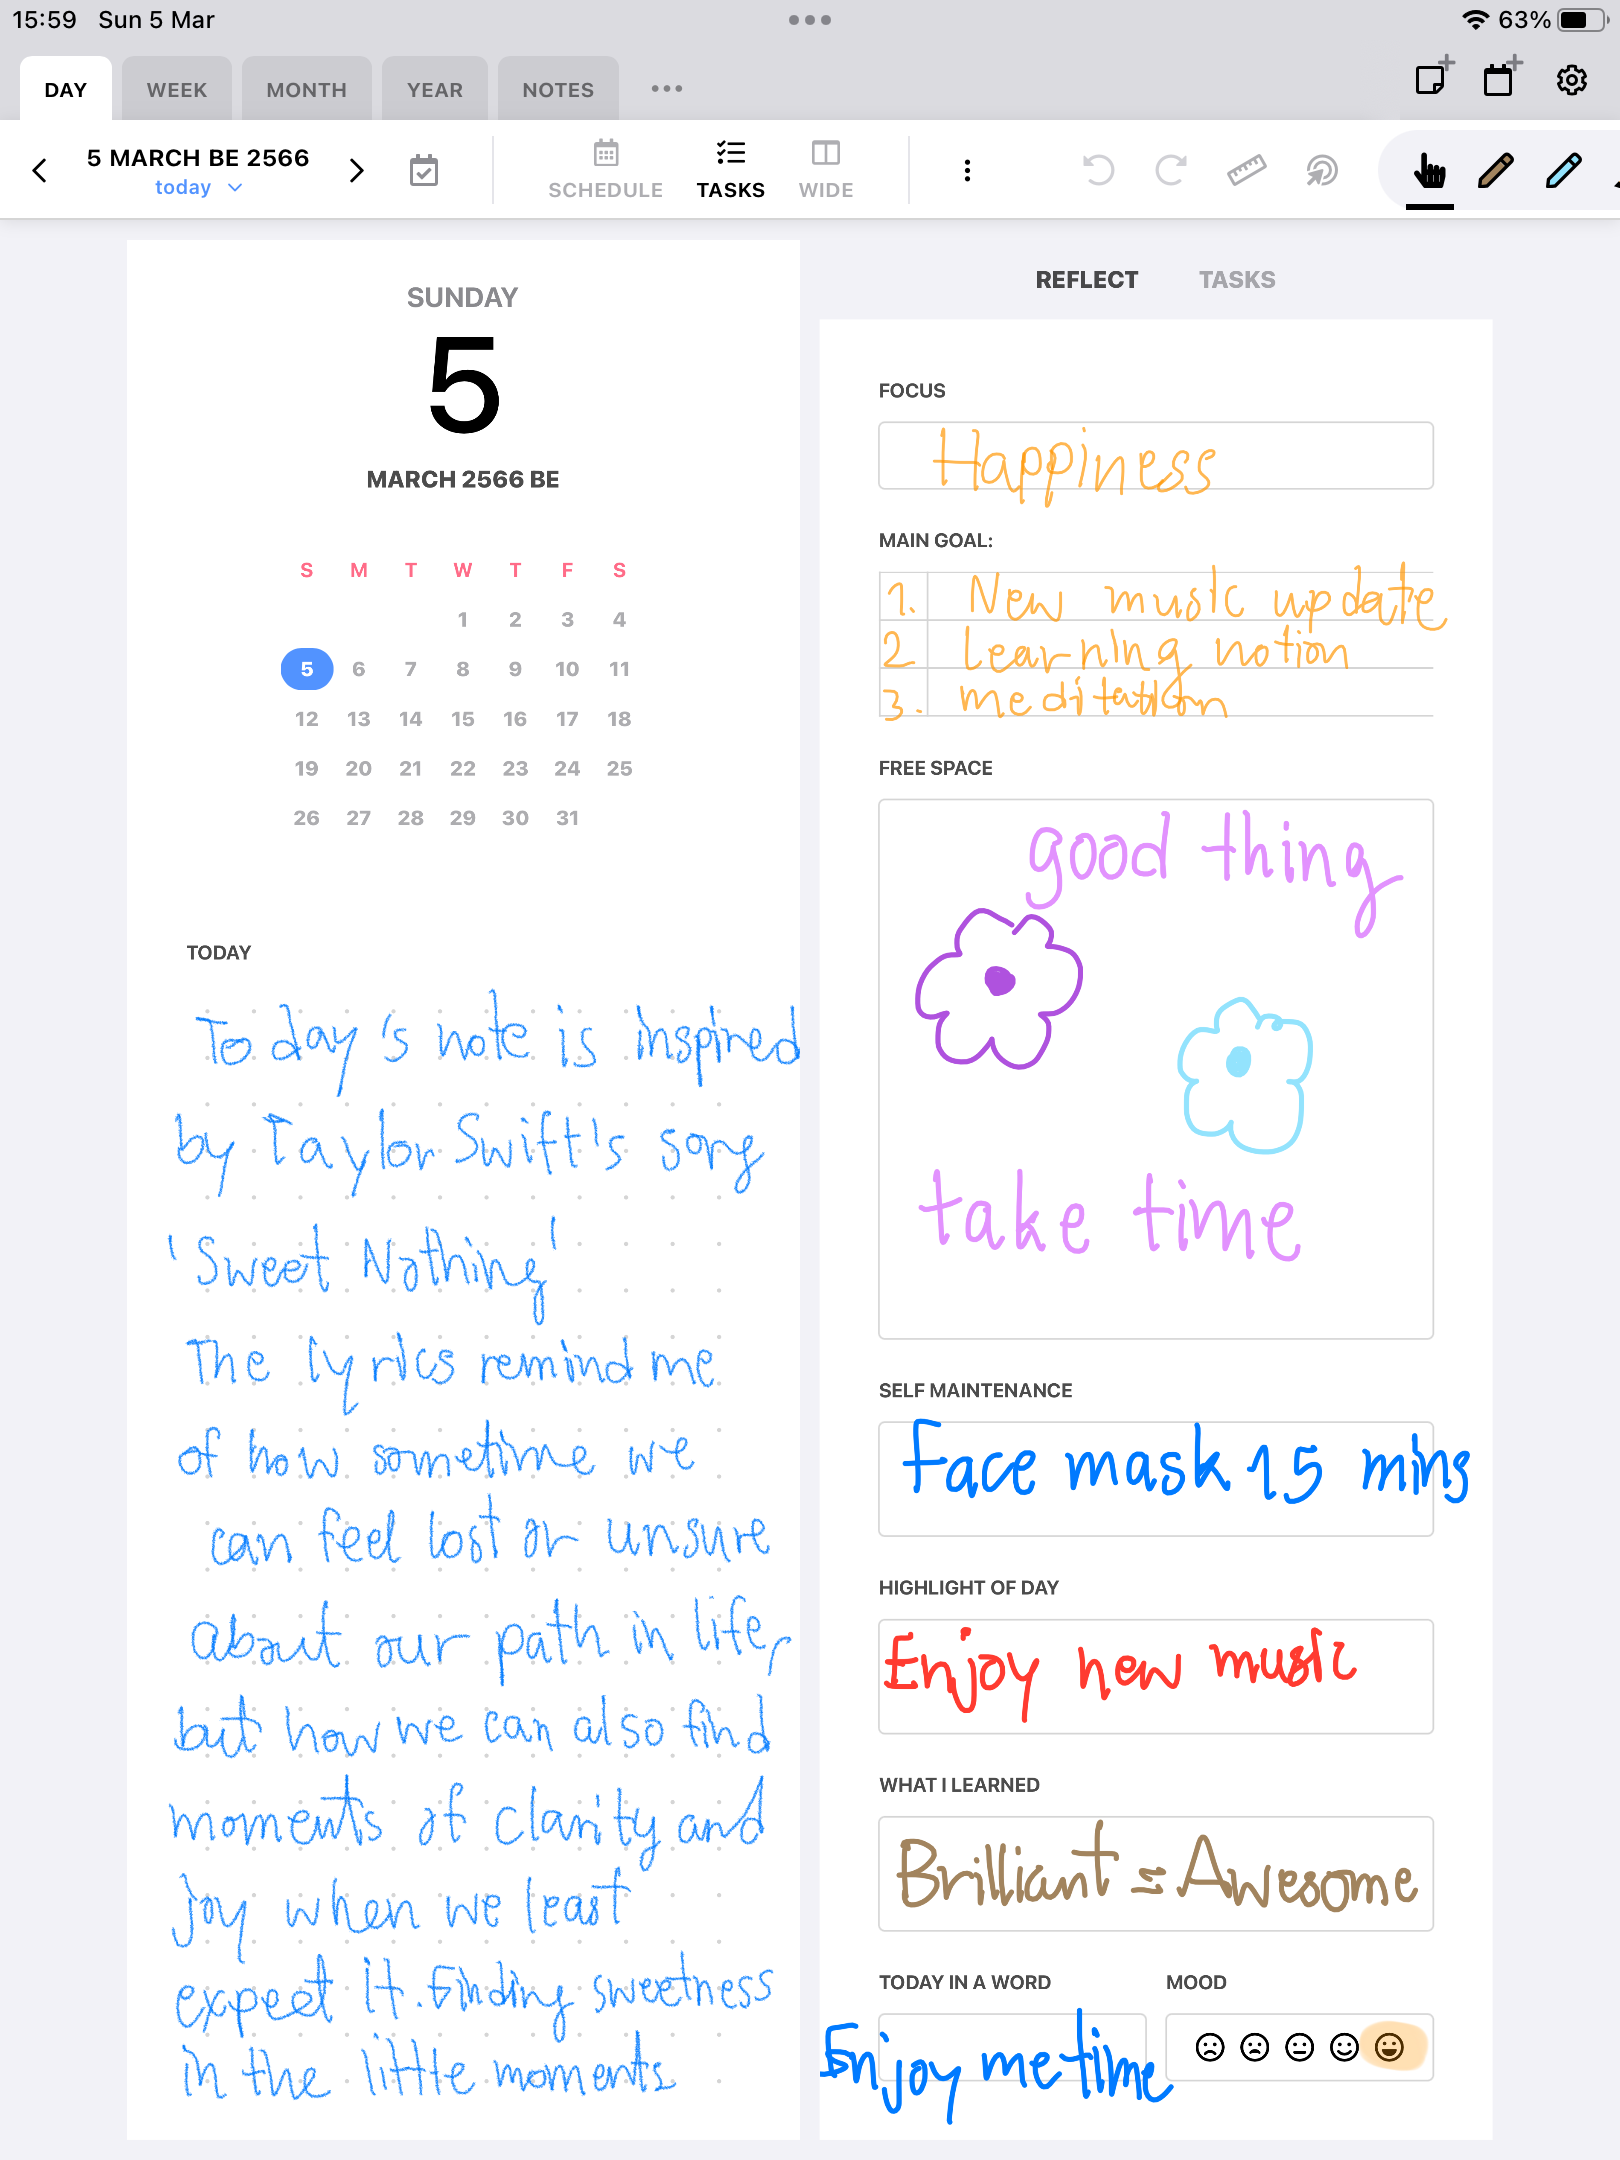 15:59 Sun 5 Mar
63%
DAY WEEK MONTH YEAR NOTES
5 MARCH BE 2566
today
SCHEDULE TASKS WIDE
SUNDAY
5
MARCH 2566 BE
S M T W T F S
1 2 3 4
5 6 7 8 9 10 11
12 13 14 15 16 17 18
19 20 21 22 23 24 25
26 27 28 29 30 31
TODAY
Today's note is inspired
by Taylor Swift's song
'Sweet Nothing'
The lyrics remind me
of how sometime we
can feel lost or unsure
about our path in life,
but how we can also find
moments of clarity and
joy when we least
expect it. Finding sweetness
in the little moments
REFLECT TASKS
FOCUS
Happiness
MAIN GOAL:
1. New music update
2 Learning notion
3. meditation
FREE SPACE
good thing
take time
SELF MAINTENANCE
Face mask 15 mins
HIGHLIGHT OF DAY
Enjoy new music
WHAT I LEARNED
Brilliant = Awesome
TODAY IN A WORD
Enjoy me time
MOOD